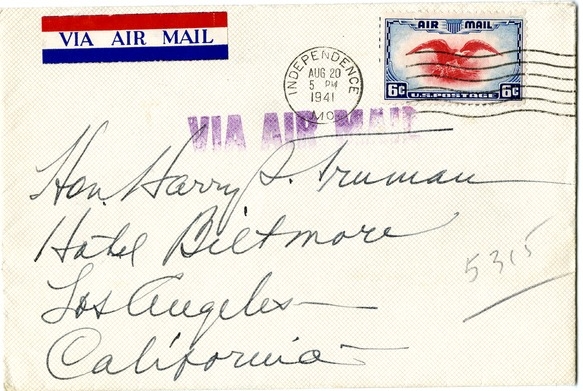 VIA AIR MAIL
AIR MAIL
6c U.S. POSTAGE 6c
INDEPENDENCE
AUG 20
5 PM
1941
MO.
VIA AIR MAIL
Hon. Harry S. Truman
Hotel Biltmore
5315
Los Angeles
California